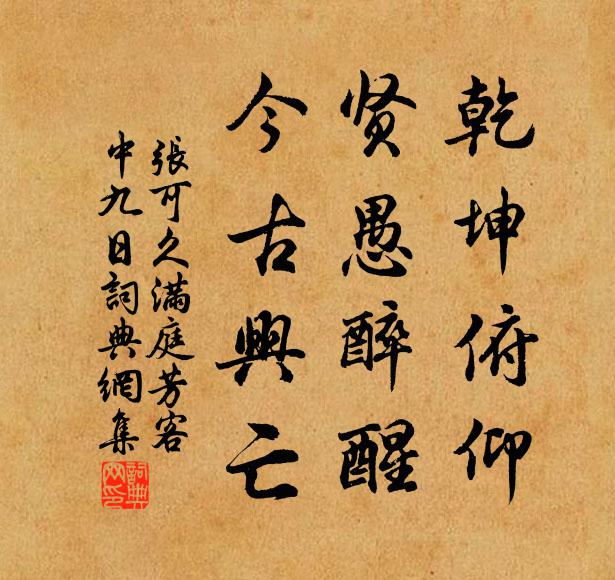 乾坤俯仰
贤愚醉醒
今古興亡
張可久滿庭芳客
中九日詞典網集
詞典網印